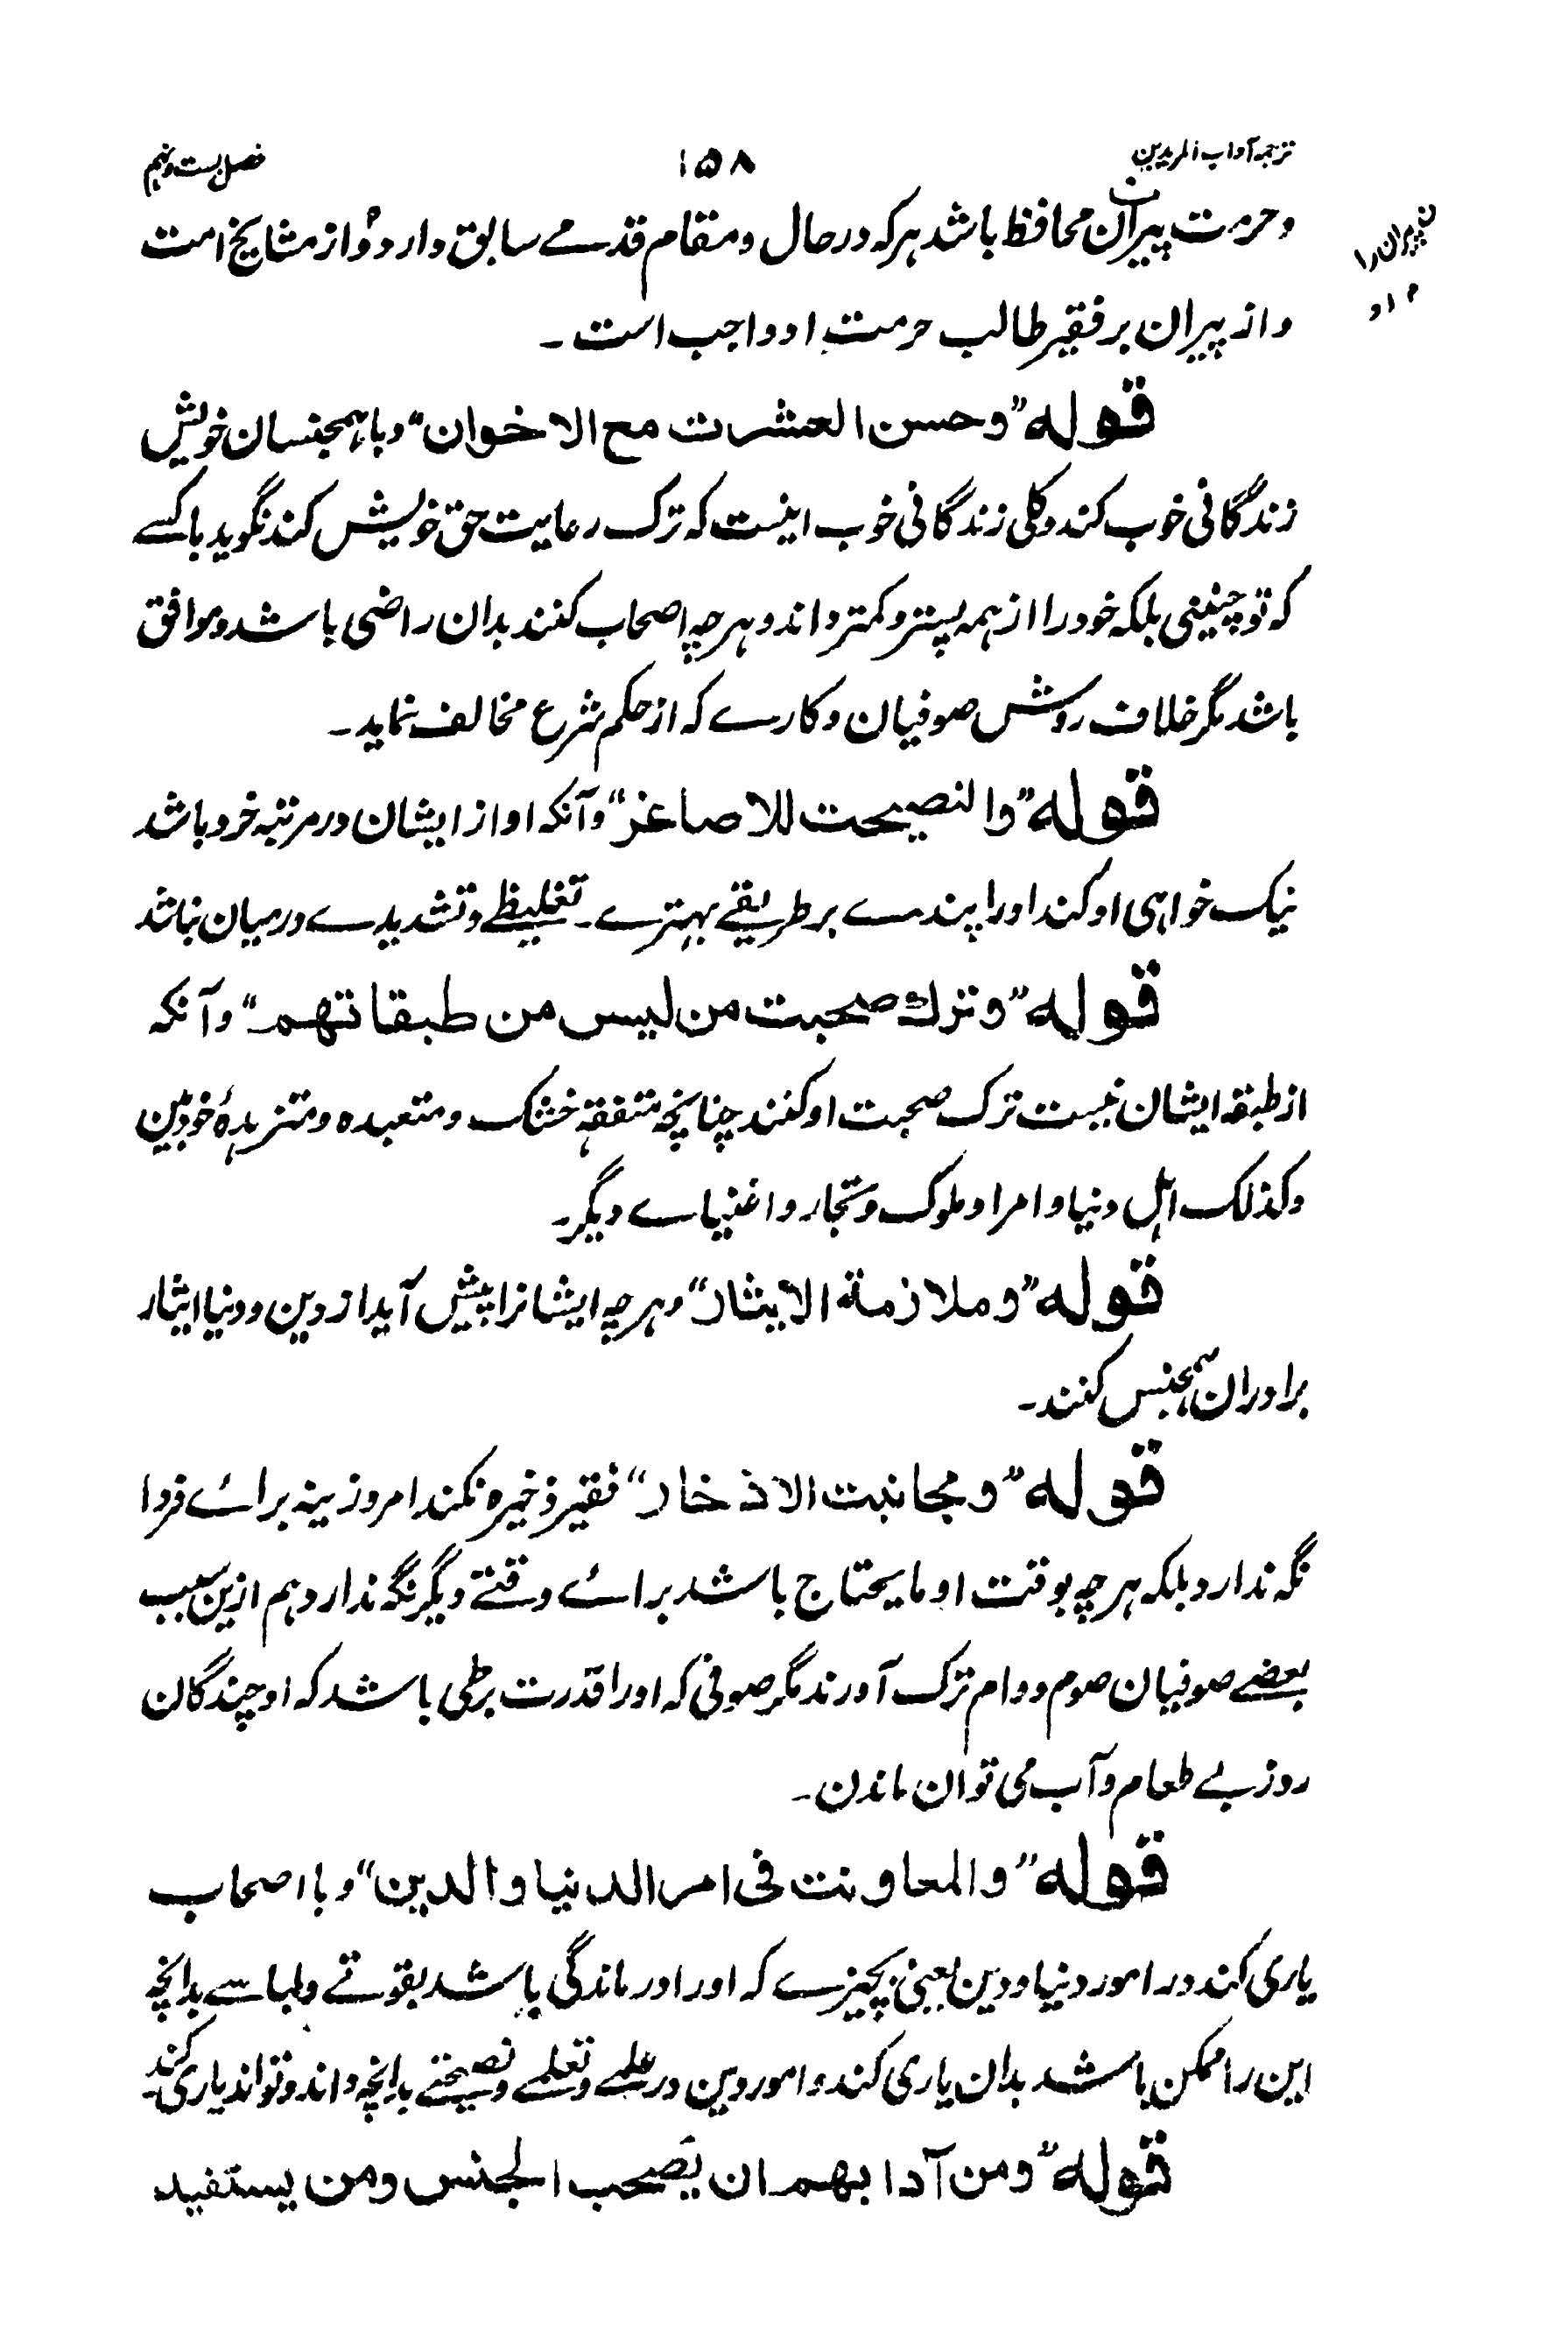 ترجمہ آداب المریدین ۱۵۸ فصل بست و نہم
و حرمت پیران محافظ باشد ہر کہ در حال و مقام قدمے سابق دارد و از مشایخ امت
ن پیران را
م او
و از پیران بر فقیر طالب حرمت او واجب است ۔
قولہ ”و حسن العشرت مع الاخوان“ و با ہمجنسان خویش
زندگانی خوب کند و کلی زندگانی خوب اینست کہ ترک رعایت حق خویش کند نگوید با کسے
کہ تو چنینی بلکہ خود را از ہمہ پستر و کمتر داند و ہر چہ اصحاب کنند بدان راضی باشد و موافق
باشد مگر خلاف روش صوفیان و کارے کہ از حکم شرع مخالف نماید ۔
قولہ ”والنصیحت للاصاغر“ و آنکہ او از ایشان در مرتبہ خرد باشد
نیک خواہی او کند او را پندے بر طریقے بہترے ۔ تغلیظے و تشدیدے درمیان نباشد
قولہ ”و ترک صحبت من لیس من طبقاتهم“ و آنکہ
از طبقہ ایشان نیست ترک صحبت او کنند چنانچہ متفقہہ خشک و متعبدہ و متزہدۂ خودبین
و کذلک اہل دنیا و امرا و ملوک و تجار و اغنیاے دیگر۔
قولہ ”و ملازمة الایثار“ و ہر چہ ایشانرا پیش آید از دین و دنیا ایثار
برادران ہمجنس کنند ۔
قولہ ”و مجانبت الاذخار“ فقیر ذخیرہ نکند امروزینہ براۓ فردا
نگہ ندارد بلکہ ہر چہ بوقت او مایحتاج باشد براۓ وقتے دیگر نگہ ندارد ہم ازین سبب
بعضے صوفیان صوم دوام ترک آورند مگر صوفی کہ او را قدرت بر طی باشد کہ او چندگان
روز بے طعام و آب می توان ماندن ۔
قولہ ”والمعاونت فی امر الدنیا والدین“ و با اصحاب
یاری کند در امور دنیا و دین یعنی بچیزے کہ او را درماندگی باشد بقوتے و لباسے بدانچہ
این را ممکن باشد بدان یاری کند و امور دین در علمے و تعلمے و نصیحتے بدانچہ داند و تواند یاری کند
قولہ ”و من آدابهم ان یَصحب الجنس و من یستفید